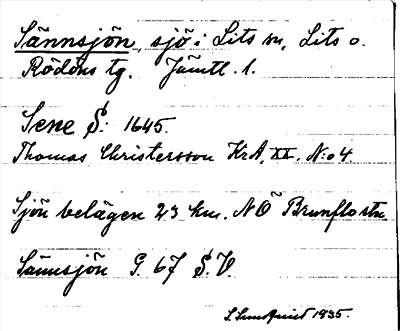 Sännsjön, sjö i Lits sn, Lits o.
Rödöns tg. Jämtl. l.
Sene S: 1645.
Thomas Christersson KrA, XX, N:o 4.
Sjön belägen 23 km. NO Brunflo stn
Sännsjön G. 67 S.V.
S. Lundquist 1935.